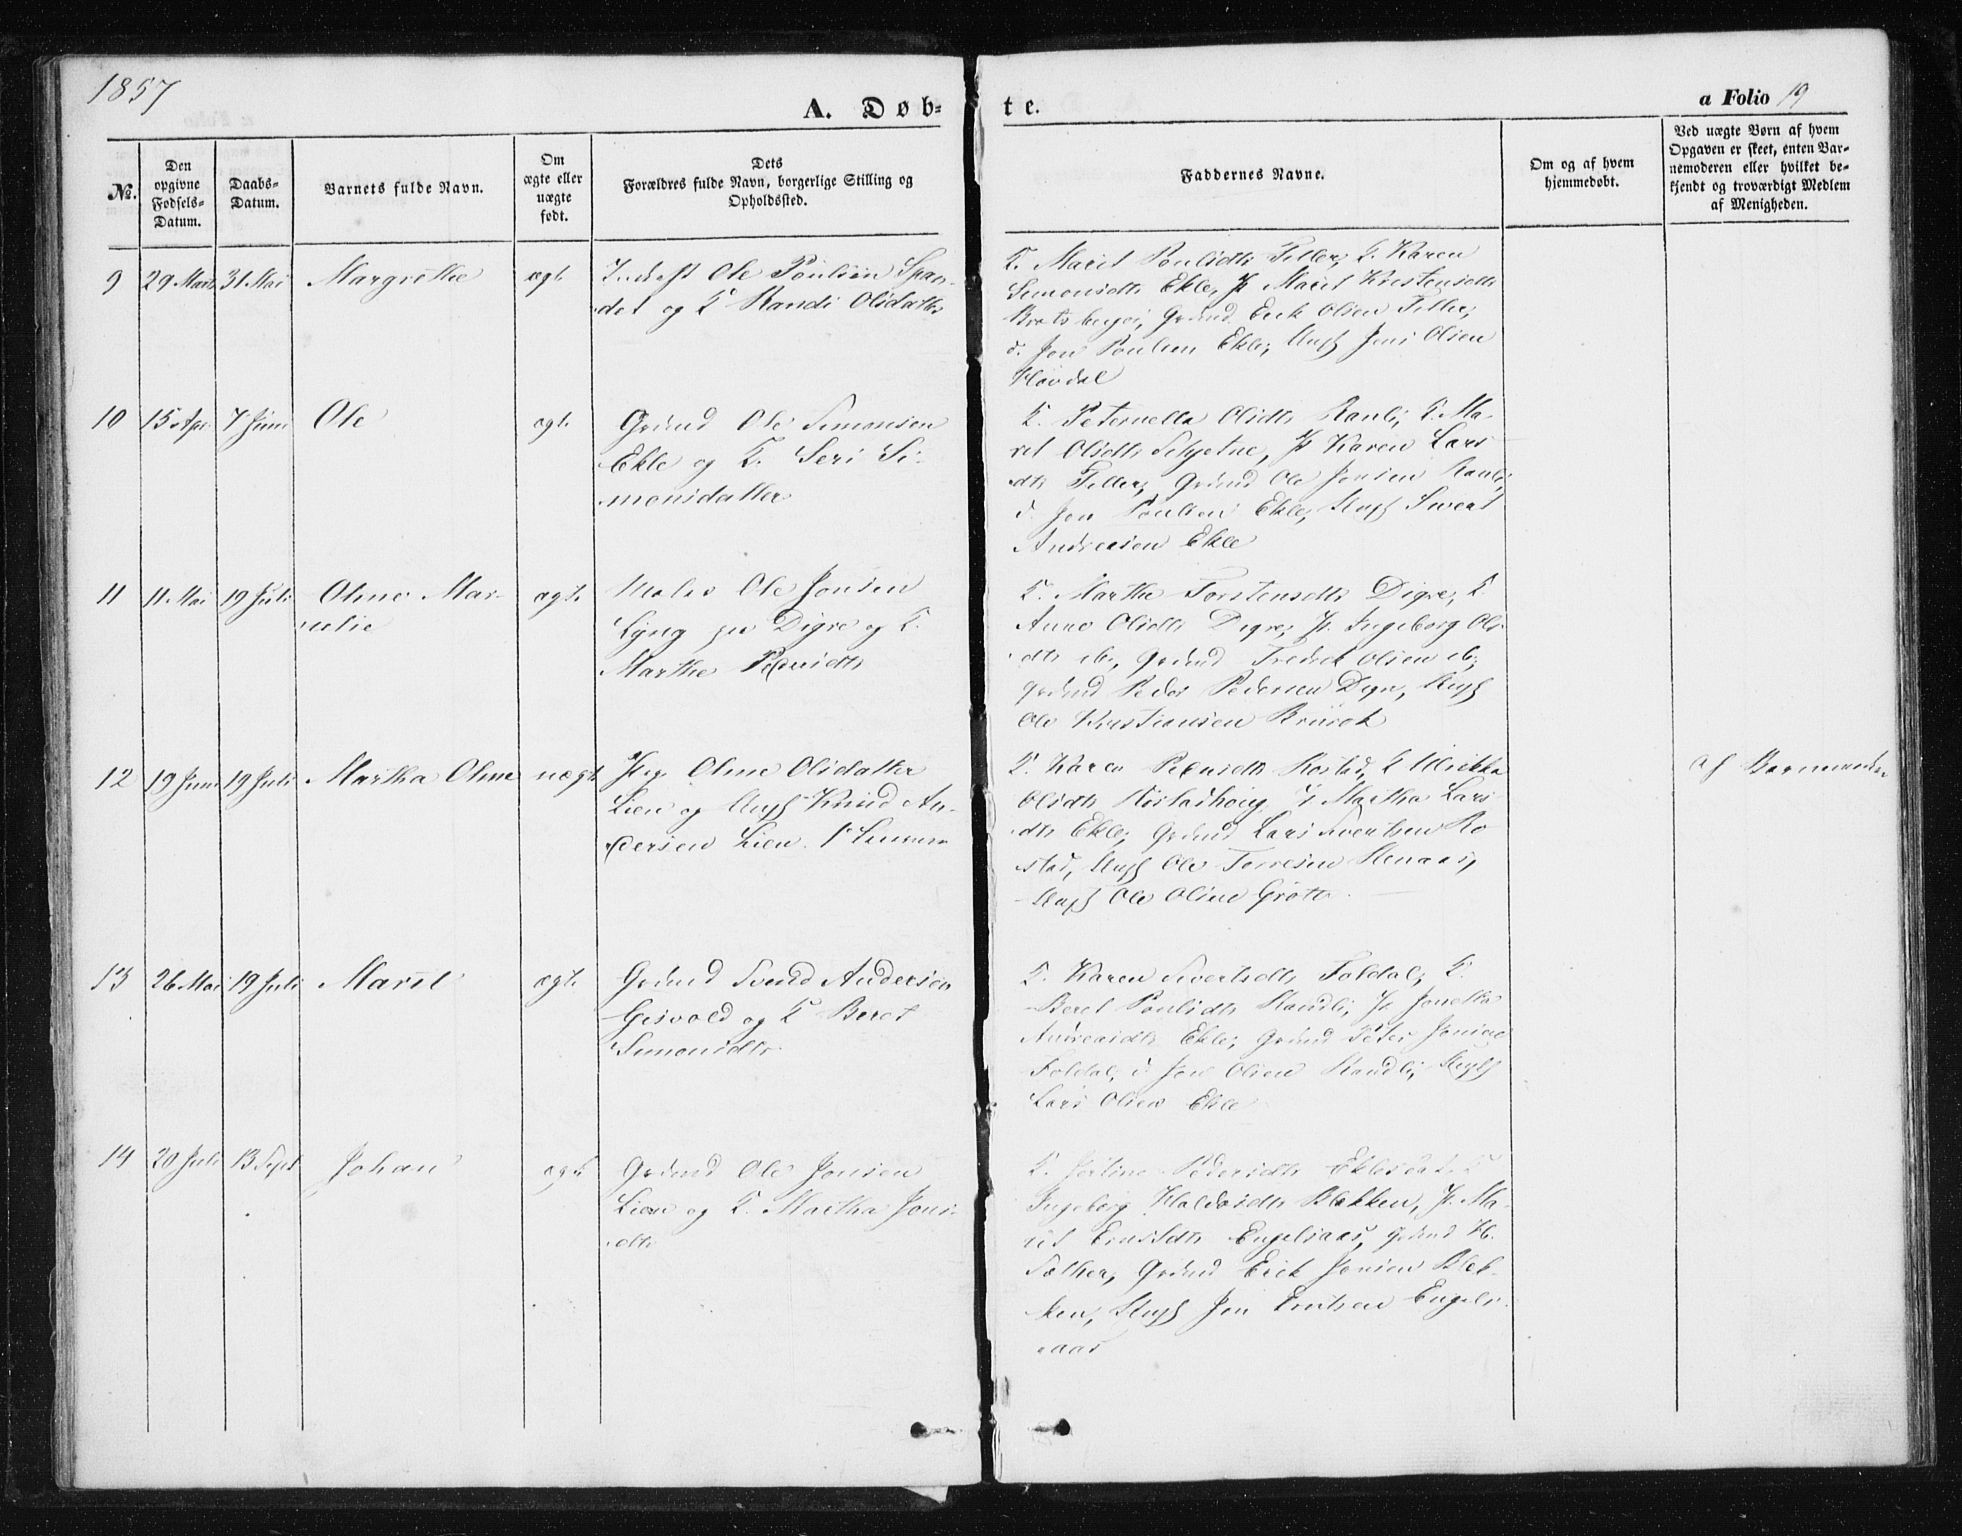 1857
A. Døb-
te.
a Folio 19
No.
Den opgivne Fødsels-Datum.
Daabs-Datum.
Barnets fulde Navn.
Om ægte eller uægte født.
Dets Forældres fulde Navn, borgerlige Stilling og Opholdssted.
Faddernes Navne.
Om og af hvem hjemmedøbt.
Ved uægte Børn af hvem Opgaven er skeet, enten Barnemoderen eller hvilket bekjendt og troværdigt Medlem af Menigheden.
9 29 Marts 31 Mai Margrethe ægt.
Ole Paulsen Span-
det og K Randi Olsdatter
K. Marit Paulsdtr Tiller, K Karen
Simonsdtr Ekle, P Marit Kristensdtr
Bratsberg, Grdmd Erik Olsen Tiller,
d. Jon Paulsen Ekle, Ungk Jens Olsen
10 15 Apr. 7 Juni Ole ægt.
Grdmd Ole Simonsen
Ekle og K. Seri Si-
monsdatter
K. Peternella Olsdtr Ranli, K. Ma-
rit Olsdtr Schjetne, P Karen Lars-
dtr Tiller, Grdmd Ole Jonsen Ranli,
d. Jon Paulsen Ekle, Ungk Sivert
Andreasen Ekle
11 11 Mai 19 Juli Oline Mar- ægt.
Ole Jonsen
Lyng Digre og K.
Marthe
K. Marthe Torstensdtr Digre, K.
Anne Olsdtr Digre, P. Ingeborg Ols-
dtr ib, Grdmd Fredrik Olsen ib,
Grdmd Peder Pedersen Digre, Ungk
Ole Kristiansen
12 19 Juni 19 Juli Martha Oline uægt.
Pige Oline Olsdatter
Lien og Ungk Knud An-
dersen Lien.
K. Karen Rostad, K Ulrikka
Olsdtr P Martha Lars-
dtr Ekle, Grdmd Lars Sivertsen Ro-
stad, Ungk Ole Stenaas,
Ungk Ole Grøtte
af Barnmoder
13 26 Mai 19 Juli Marit ægt.
Grdmd Svend Andersen
Gisvold og K Beret
Simonsdtr
K. Karen Sivertsdtr Foldal, K.
Beret Paulsdtr P Jonetta
Andreasdtr Ekle, Grdmd Peter Jonsen
Foldal, d Jon Olsen Ungk
Lars Olsen Ekle
14 20 Juli 13 Sept Johan ægt
Grdmd Ole Jonsen
Lien og K. Martha Jons-
dtr
K. Pedersdtr K
Ingeborg Haldosdtr Blekken, P. Ma-
rit Engelsaas, Grdmd H.
Sæther, Grdmd Erik Jonsen Blek-
ken, Ungk Jon Engels-
aas